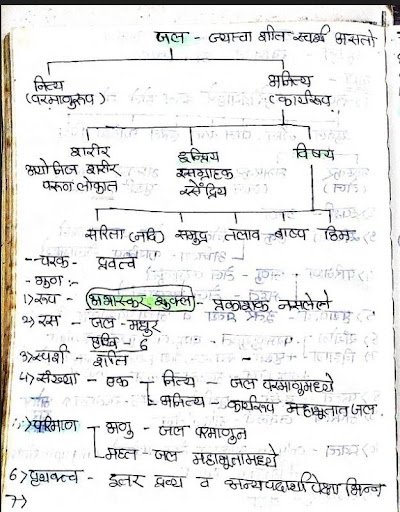 जल - ज्याचा शीत स्पर्श असतो
नित्य अनित्य
(परमाणुरूप) (कार्यरूप)
शरीर इन्द्रिय विषय
अयोनिज शरीर रसग्राहक
वरुण लोकात रसेंद्रिय
सरिता (नदि) समुद्र तलाव बाष्प हिम
-- चरक - द्रवत्व
- गुण :-
1) रूप - अभास्कर शुक्ल - प्रकाशक नसलेले
2) रस - जल - मधुर
6
3) स्पर्श - शीत
4) संख्या - एक - नित्य - जल परमाणुमध्ये
अनित्य - कार्यरूप महाभूतात जल.
परिमाण - अणु - जल परमाणुत
महत - जल महाभूतांमध्ये
6) पृथकत्व - इतर द्रव्य व अन्यपदार्थापेक्षा भिन्न
7)